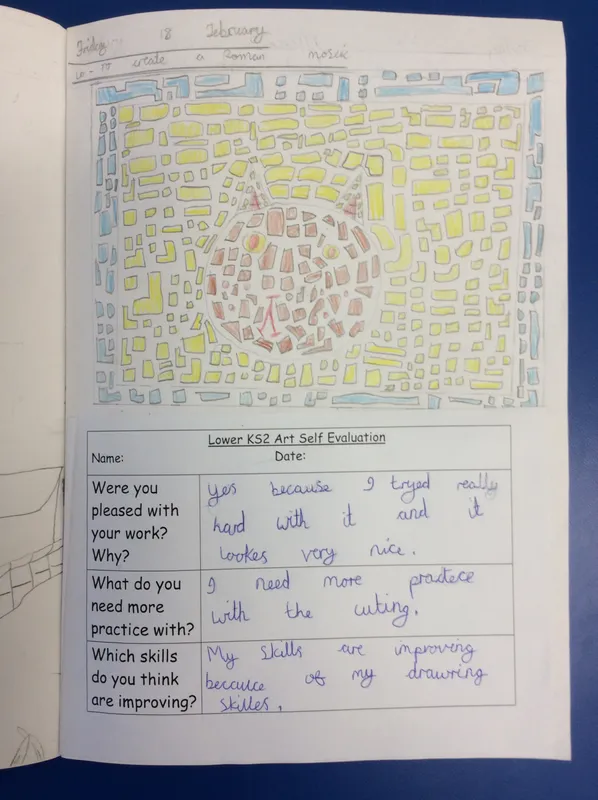 Friday 18 February
LO - TO create a Roman mosiK
Lower KS2 Art Self Evaluation
Name: Date:
Were you
pleased with
your work?
Why?
Yes because I tryed really
hard with it and it
lookes very nice.
What do you
need more
practice with?
I need more practece
with the cuting.
Which skills
do you think
are improving?
My skills are improving
becaulce of my drawring
skilles.